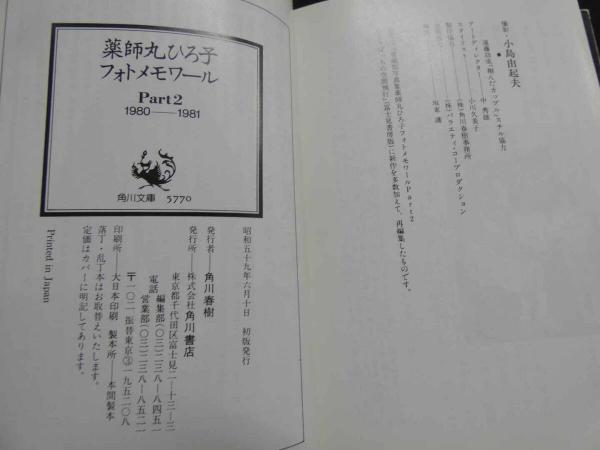 撮影・小島由起夫
●
遠藤功成「翔んだカップル」スチル協力
アートディレクター――中 秀雄
スタイリスト――小川久美子
製作協力――(株)角川春樹事務所
(株)バラエティ・コープロダクション
坂東 護
薬師丸ひろ子フォトメモワールPart2
(富士見書房版)に新作を多数加えて、再編集したものです。
薬師丸ひろ子
フォトメモワール
Part2
1980――1981
角川文庫 5770
昭和五十九年六月十日 初版発行
発行者――角川春樹
発行所――株式会社角川書店
東京都千代田区富士見二―十三―三
電話 編集部(〇三)二三八―八四五一
営業部(〇三)二三八―八五二一
〒一〇二 振替東京③一九五二〇八
印刷所――大日本印刷 製本所――本間製本
落丁・乱丁本はお取替えいたします。
定価はカバーに明記してあります。
Printed in Japan